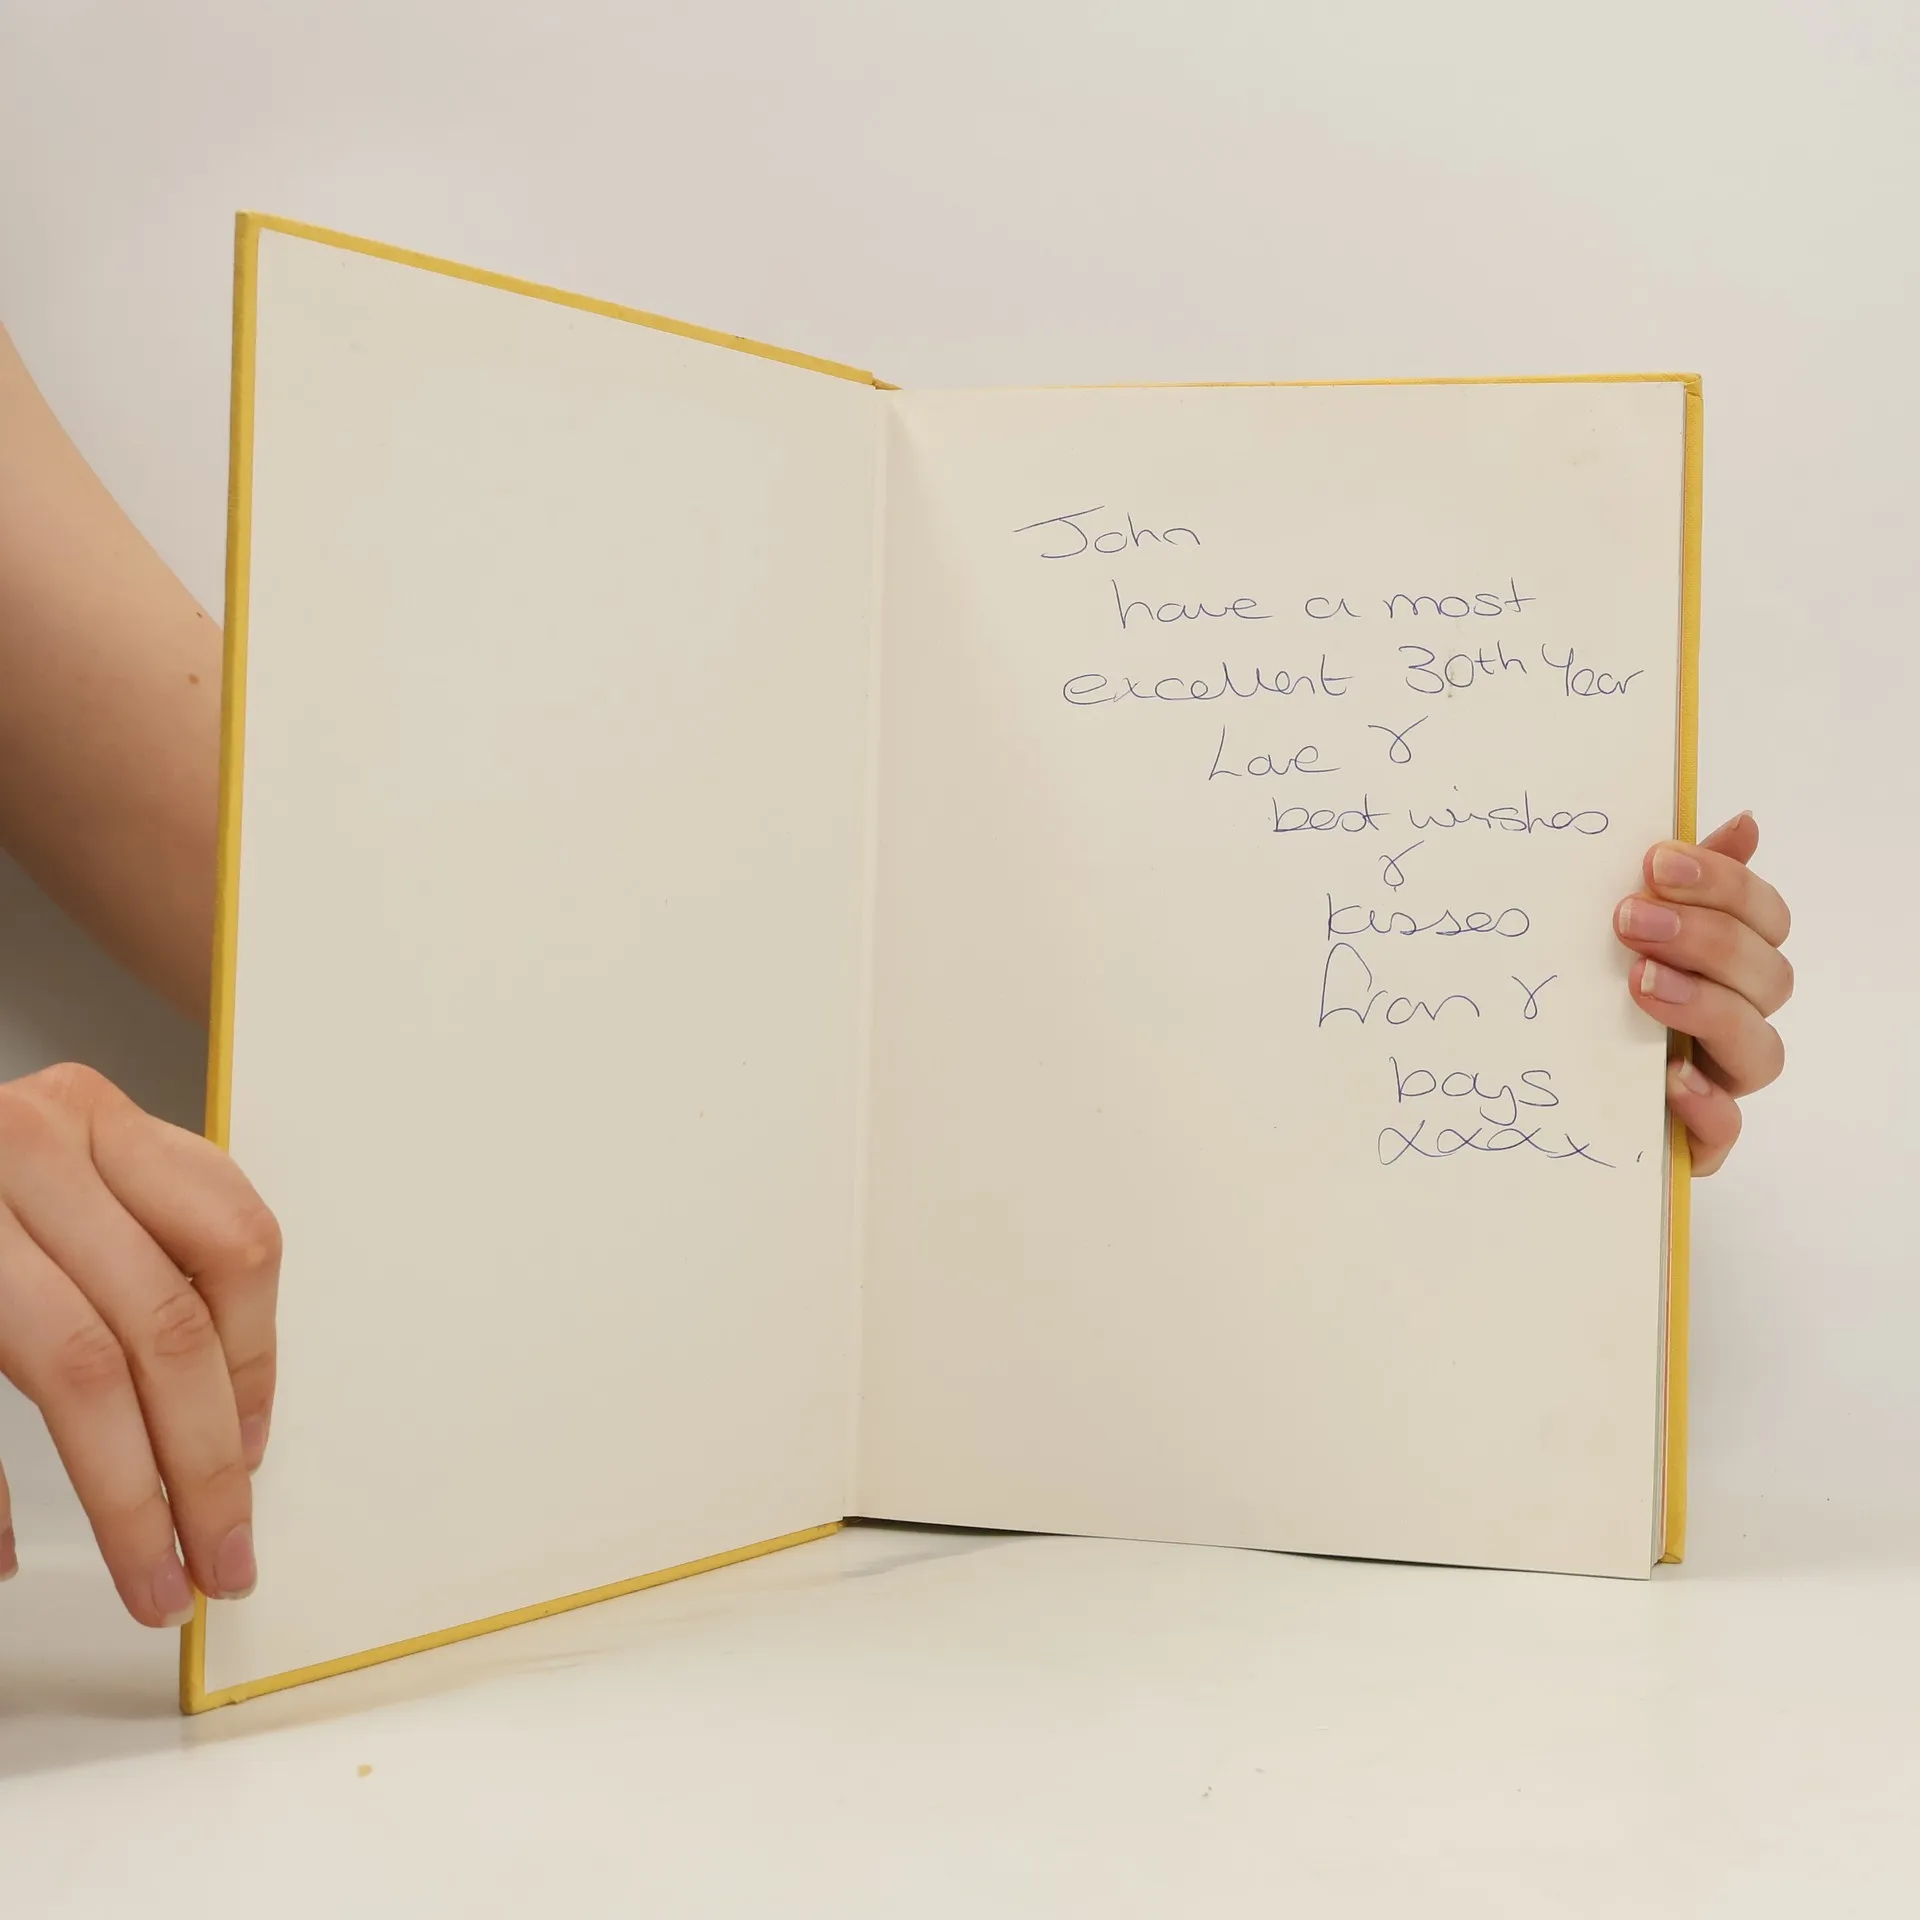 John
have a most
excellent 30th Year
Love &
best wishes
&
kisses
Fran &
boys
xxxx.